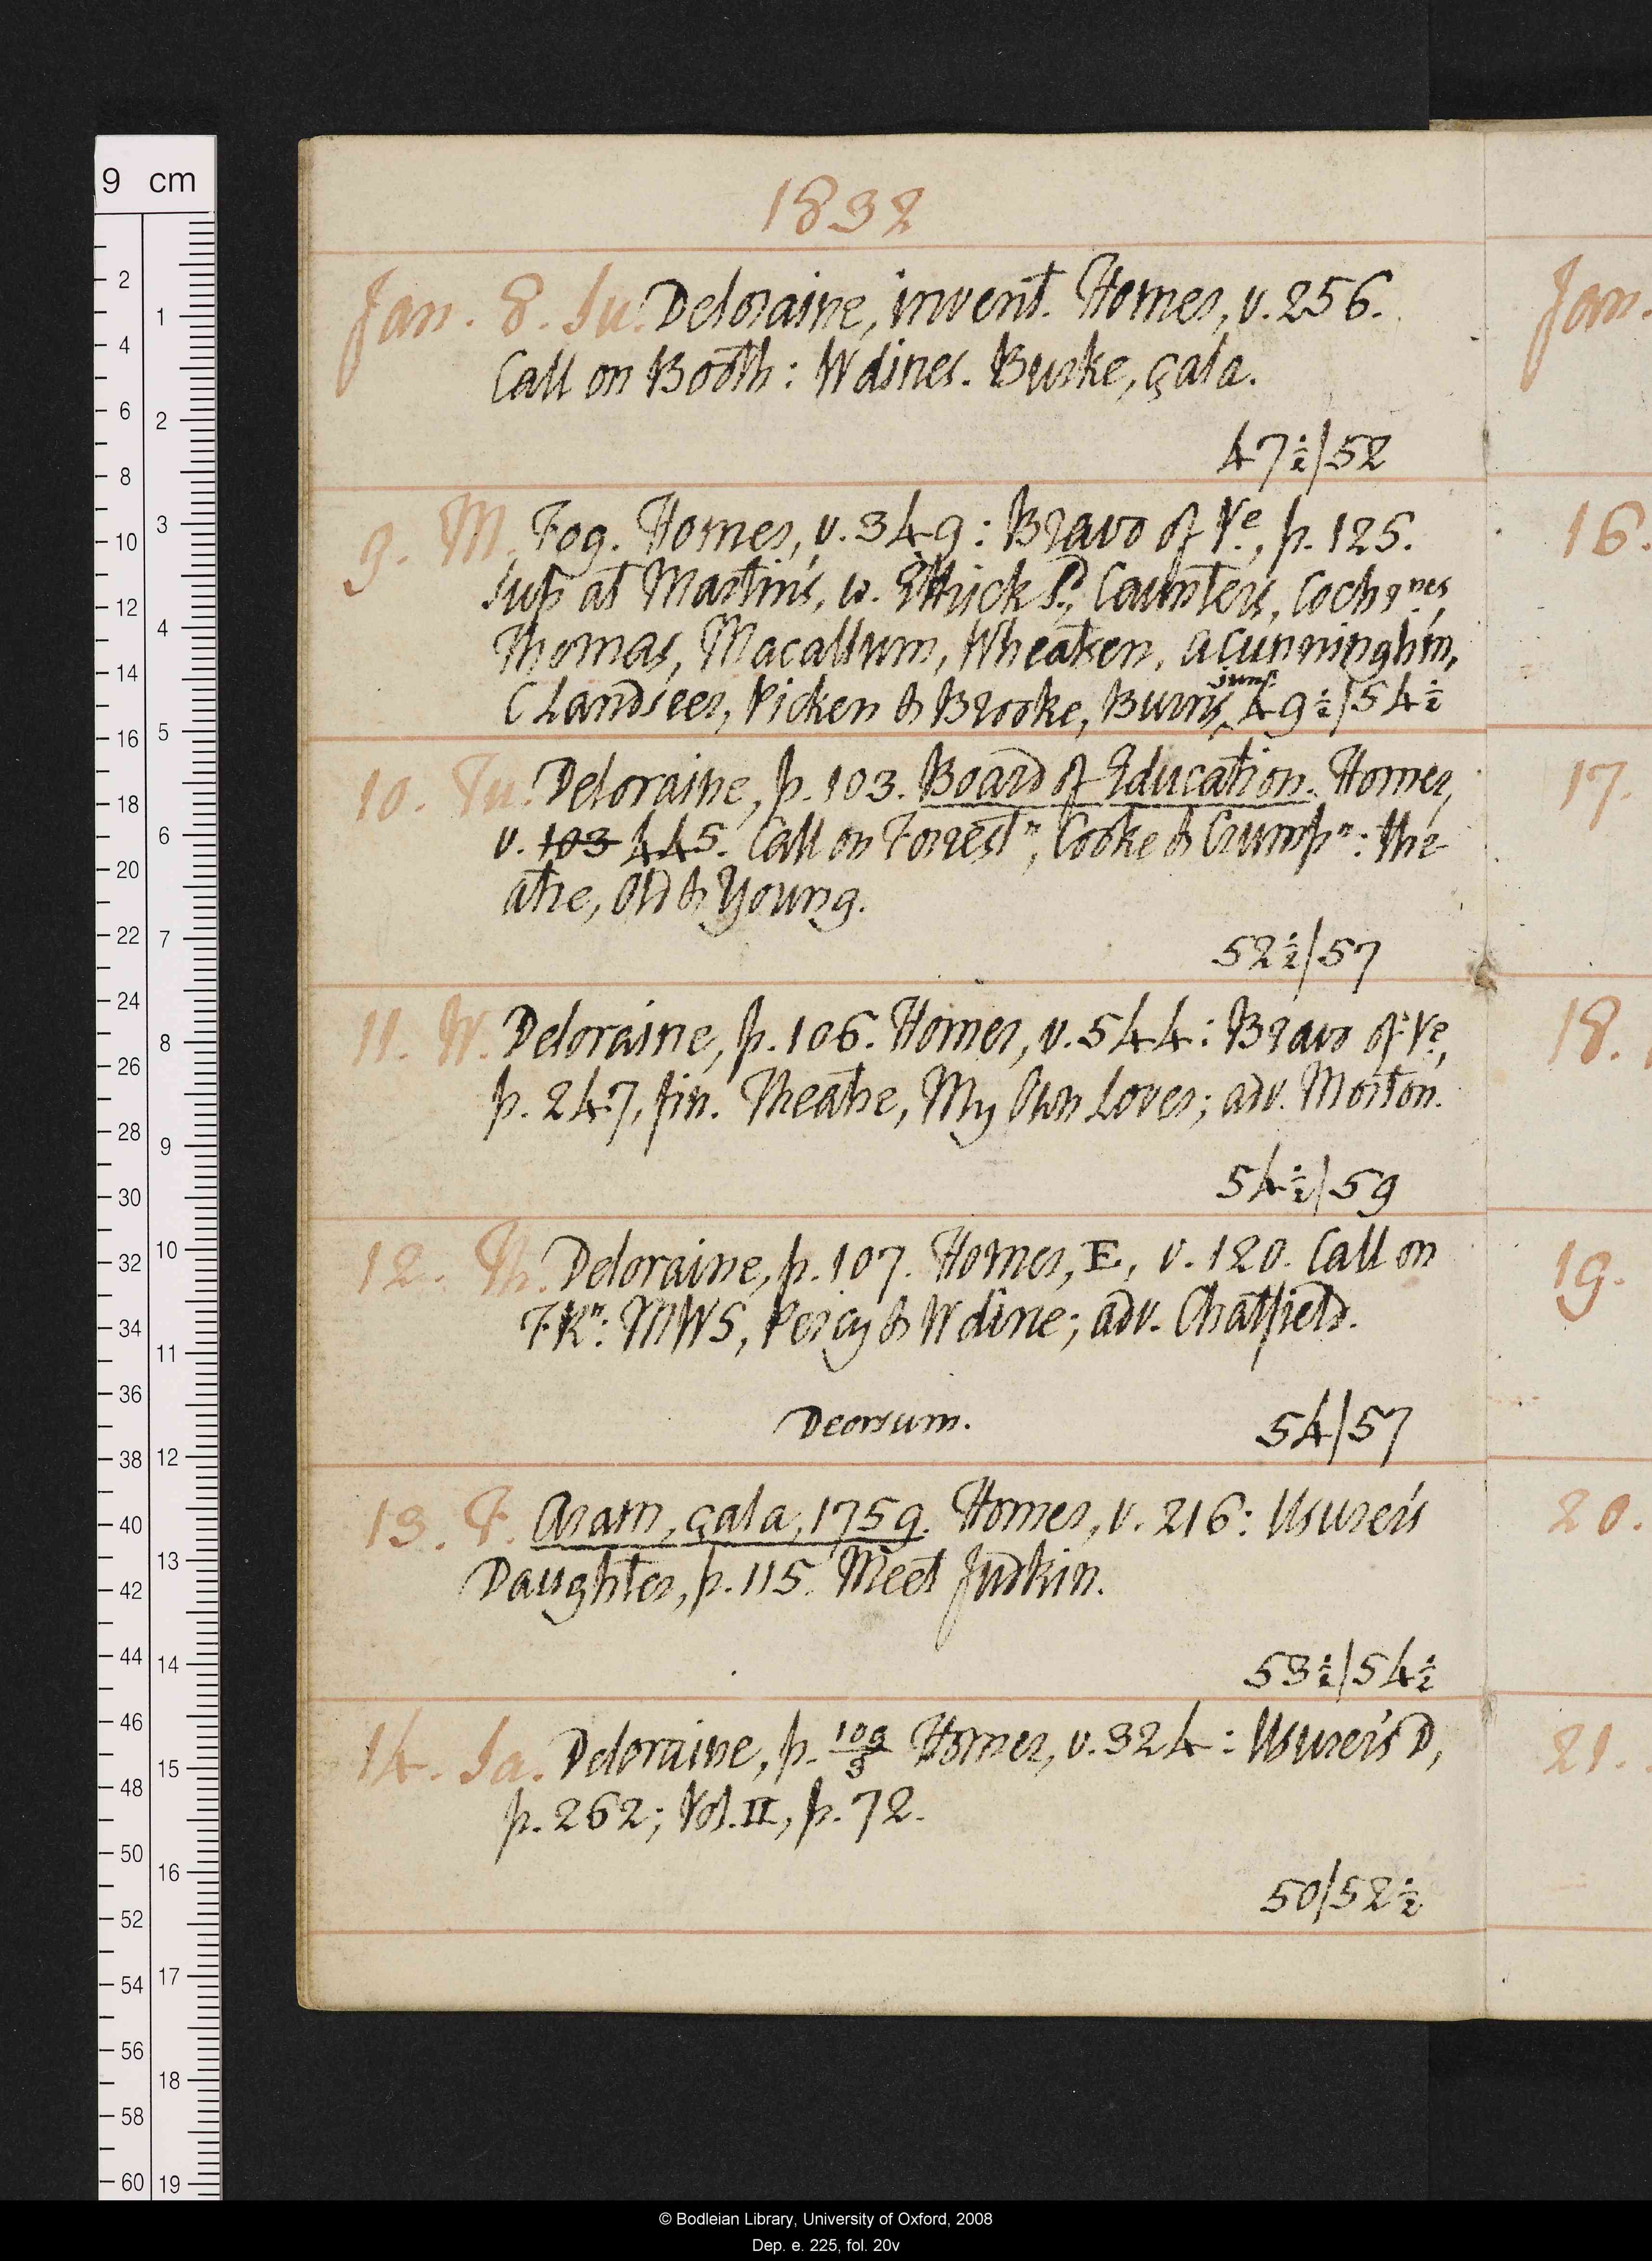 9 cm
1832
Jan. 8. Su. Deloraine, invent. Homer, v. 256.
Call on Booth: W dines. Burke, çala.
47½/52
9. M. Fog. Homer, v. 349: Bravo of Vᵉ, p. 125.
Sup at Martin's, w. Ettyick Sᵈ, Caunters, Cochʳⁿᵉˢ,
Thomas, Macallum, Wheatsen, A Cunninghm,
C Landseer, Picken & Brooke, Burns junʳ. 49½/54½
10. Tu. Deloraine, p. 103. Board of Education. Homer,
v. 103 445. Call on Forrestⁿ, Cooke & Crumpⁿ: the-
atre, Old & Young.
52½/57
11. W. Deloraine, p. 106. Homer, v. 544: Bravo of Vᵉ,
p. 247, fin. Theatre, My Own Lover; adv. Morton.
54½/59
12. Th. Deloraine, p. 107. Homer, E, v. 120. Call on
FKⁿ: MWS, Percy & W dine; adv. Chatfield.
Deorsum.
54/57
13. F. Aram, çala, 1759. Homer, v. 216: Usurer's
Daughter, p. 115. Meet Judkin.
53½/54½
14. Sa. Deloraine, p. 109/3 Homer, v. 324: Usurer's D,
p. 262; Vol. II, p. 72.
50/52½
Jan.
16.
17.
18.
19.
20.
21.
2
4
6
8
10
12
14
16
18
20
22
24
26
28
30
32
34
36
38
40
42
44
46
48
50
52
54
56
58
60
1
2
3
4
5
6
7
8
9
10
11
12
13
14
15
16
17
18
19
© Bodleian Library, University of Oxford, 2008
Dep. e. 225, fol. 20v